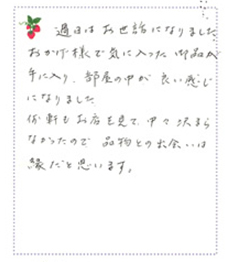 過日はお世話になりました。
おかげ様で気に入った御品が
手に入り、部屋の中が良い感じ
になりました。
何軒もお店を見て中々決まら
なかったので品物との出会いは
縁だと思います。